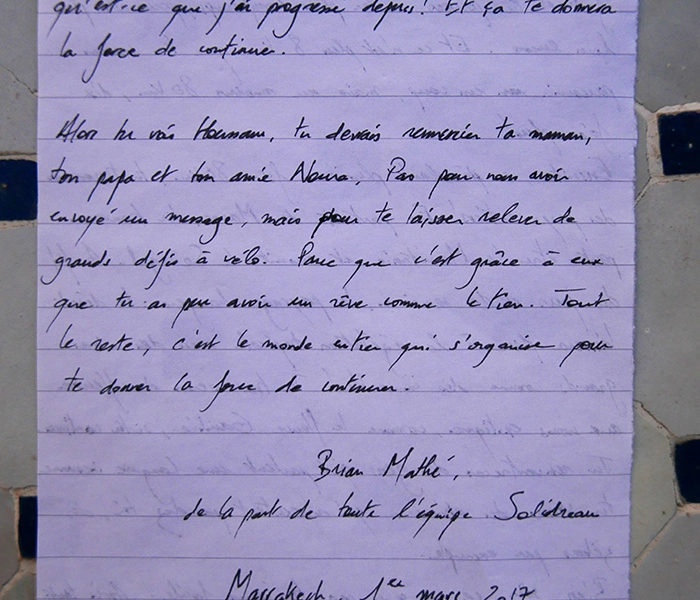 qu'est-ce que j'ai progressé depuis! Et ça te donnera
la force de continuer.
Alors tu vois Houssam, tu devais remercier ta maman,
ton papa et ton amie Noura. Pas pour nous avoir
envoyé un message, mais pour te laisser relever de
grands défis à vélo. Parce que c'est grâce à eux
que tu as pu avoir un rêve comme le tien. Tout
le reste, c'est le monde entier qui s'organise pour
te donner la force de continuer.
Brian Mathé,
de la part de toute l'équipe Solidreau
Marrakech, 1er mars 2017